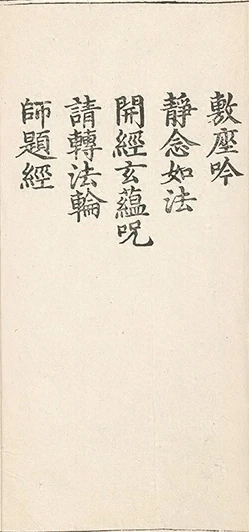 敷座吟
靜念如法
開經玄蘊咒
請轉法輪
師題經